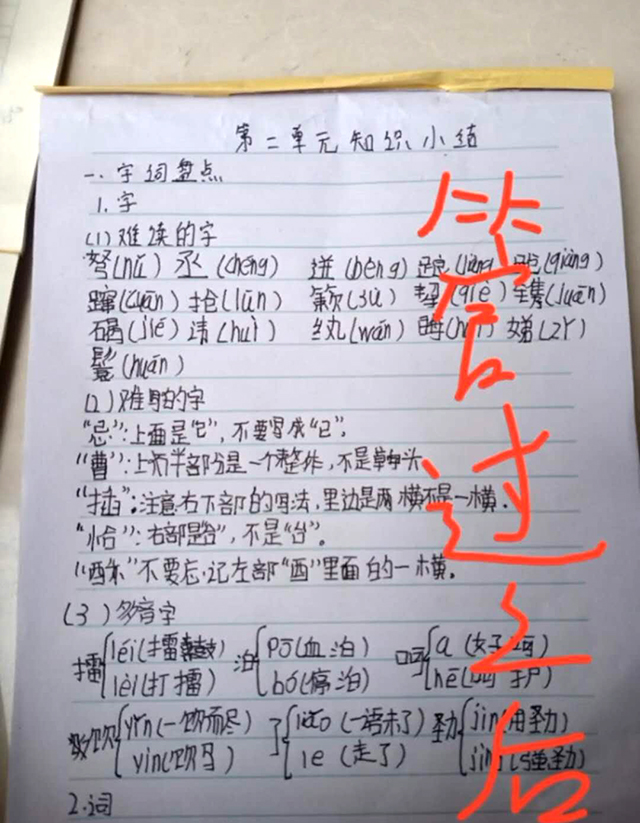 第二单元知识小结
一、字词盘点
1.字
(1)难读的字
弩(nǔ) 丞(chéng) 迸(bèng)
蹿(cuān) 抡(lūn) 簌(sù)
碣(jié) 讳(huì) 纨(wán)
鬟(huán)
(2)难写的字
"忌":上面是"己",不要写成"已"。
"曹":上面半部分是一个整体,不是草字头
"插":注意右下部的写法,里边是两横不是一横。
"恰":右部是"合",不是"台"。
不要忘记左部"西"里面的一横。
(3)多音字
擂 léi(擂鼓) lèi(打擂) 泊 pō(血泊) bó(停泊) 呵 a hē
饮 yǐn(一饮而尽) yìn(饮马) 了 liǎo(一语未了) le(走了) 劲 jìn(用劲) jìng
2.词
管过之后